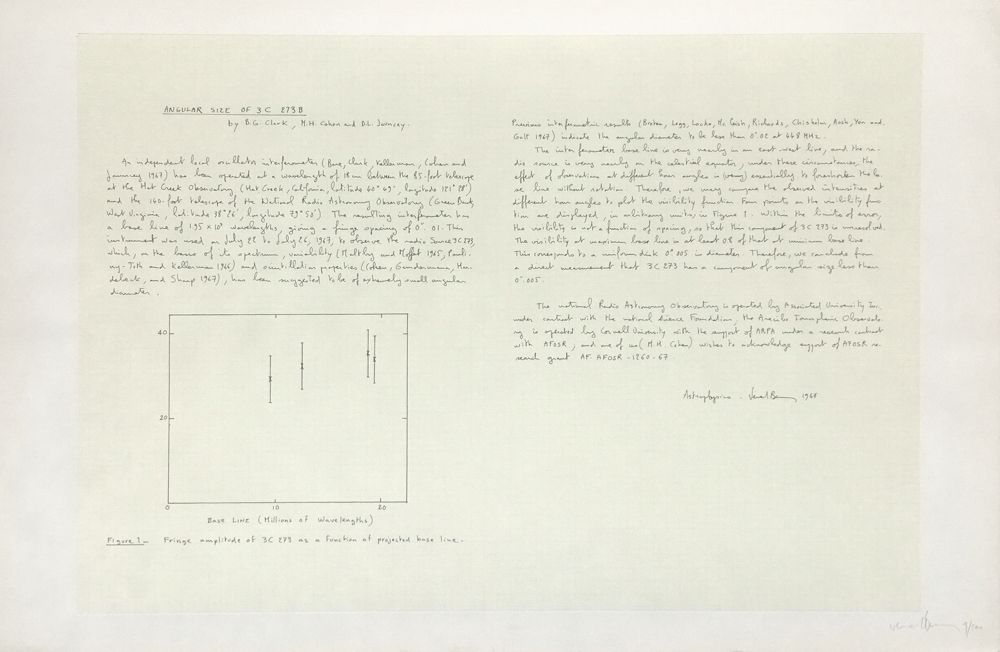 ANGULAR SIZE OF 3C 273B
by B.G. Clark, M.H. Cohen and D.L. Jauncey.
An independent local oscillator interferometer (Bare, Clark, Kellerman, Cohen and
Jauncey 1967) has been operated at a wavelength of 18 cm between the 85-foot telescope
at the Hat Creek Observatory (Hat Creek, California, latitude 40° 49', longitude 121° 28')
and the 140-foot telescope of the National Radio Astronomy Observatory (Green Bank,
West Virginia, latitude 38° 26', longitude 79° 50') The resulting interferometer has
a base line of 19.5 × 10⁶ wavelengths, giving a fringe spacing of 0".01. This
instrument was used on July 22 to July 26, 1967, to observe the radio source 3C 273,
which, on the basis of its spectrum, variability (Maltby and Moffet 1965, Pauli-
ny-Toth and Kellerman 1966) and scintillation properties (Cohen, Gundermann, Har-
debeck, and Sharp 1967), has been suggested to be of extremely small angular
diameter.
40
20
0 10 20
BASE LINE (Millions of Wavelengths)
Figure 1— Fringe amplitude of 3C 273 as a function of projected base line.
Previous interferometric results (Broten, Legg, Locke, Mc Leish, Richards, Chisholm, Yen and
Galt 1967) indicate the angular diameter to be less than 0".02 at 448 MHz.
The interferometer base line is very nearly an east west line, and the ra-
dio source is very nearly on the celestial equator, under these circumstances, the
effect of observations at different hour angles is essentially to foreshorten the ba-
se line without rotation Therefore, we may compare the observed intensities at
different hour angles to plot the visibility function Four points on the visibility func-
tion are displayed, in arbitrary units, in Figure 1. Within the limits of error,
the visibility is not a function of spacing, so this component of 3C 273 is unresolved.
The visibility at maximum base line is at least 0.8 of that at minimum base line.
This corresponds to a uniform disk 0".005 in diameter. Therefore, we conclude from
a direct measurement that 3C 273 has a component of angular size less than
0".005.
The national Radio Astronomy Observatory is operated by Associated University Inc.
under contract with the national Science Foundation, the Arecibo Ionospheric Observato-
ry is operated by Cornell University with the support of ARPA under a research contract
with AFOSR, and one of us (M.H. Cohen) wishes to acknowledge support of AFOSR re-
search grant AF AFOSR-1260-67.
Astrophysics - 1968
9/100